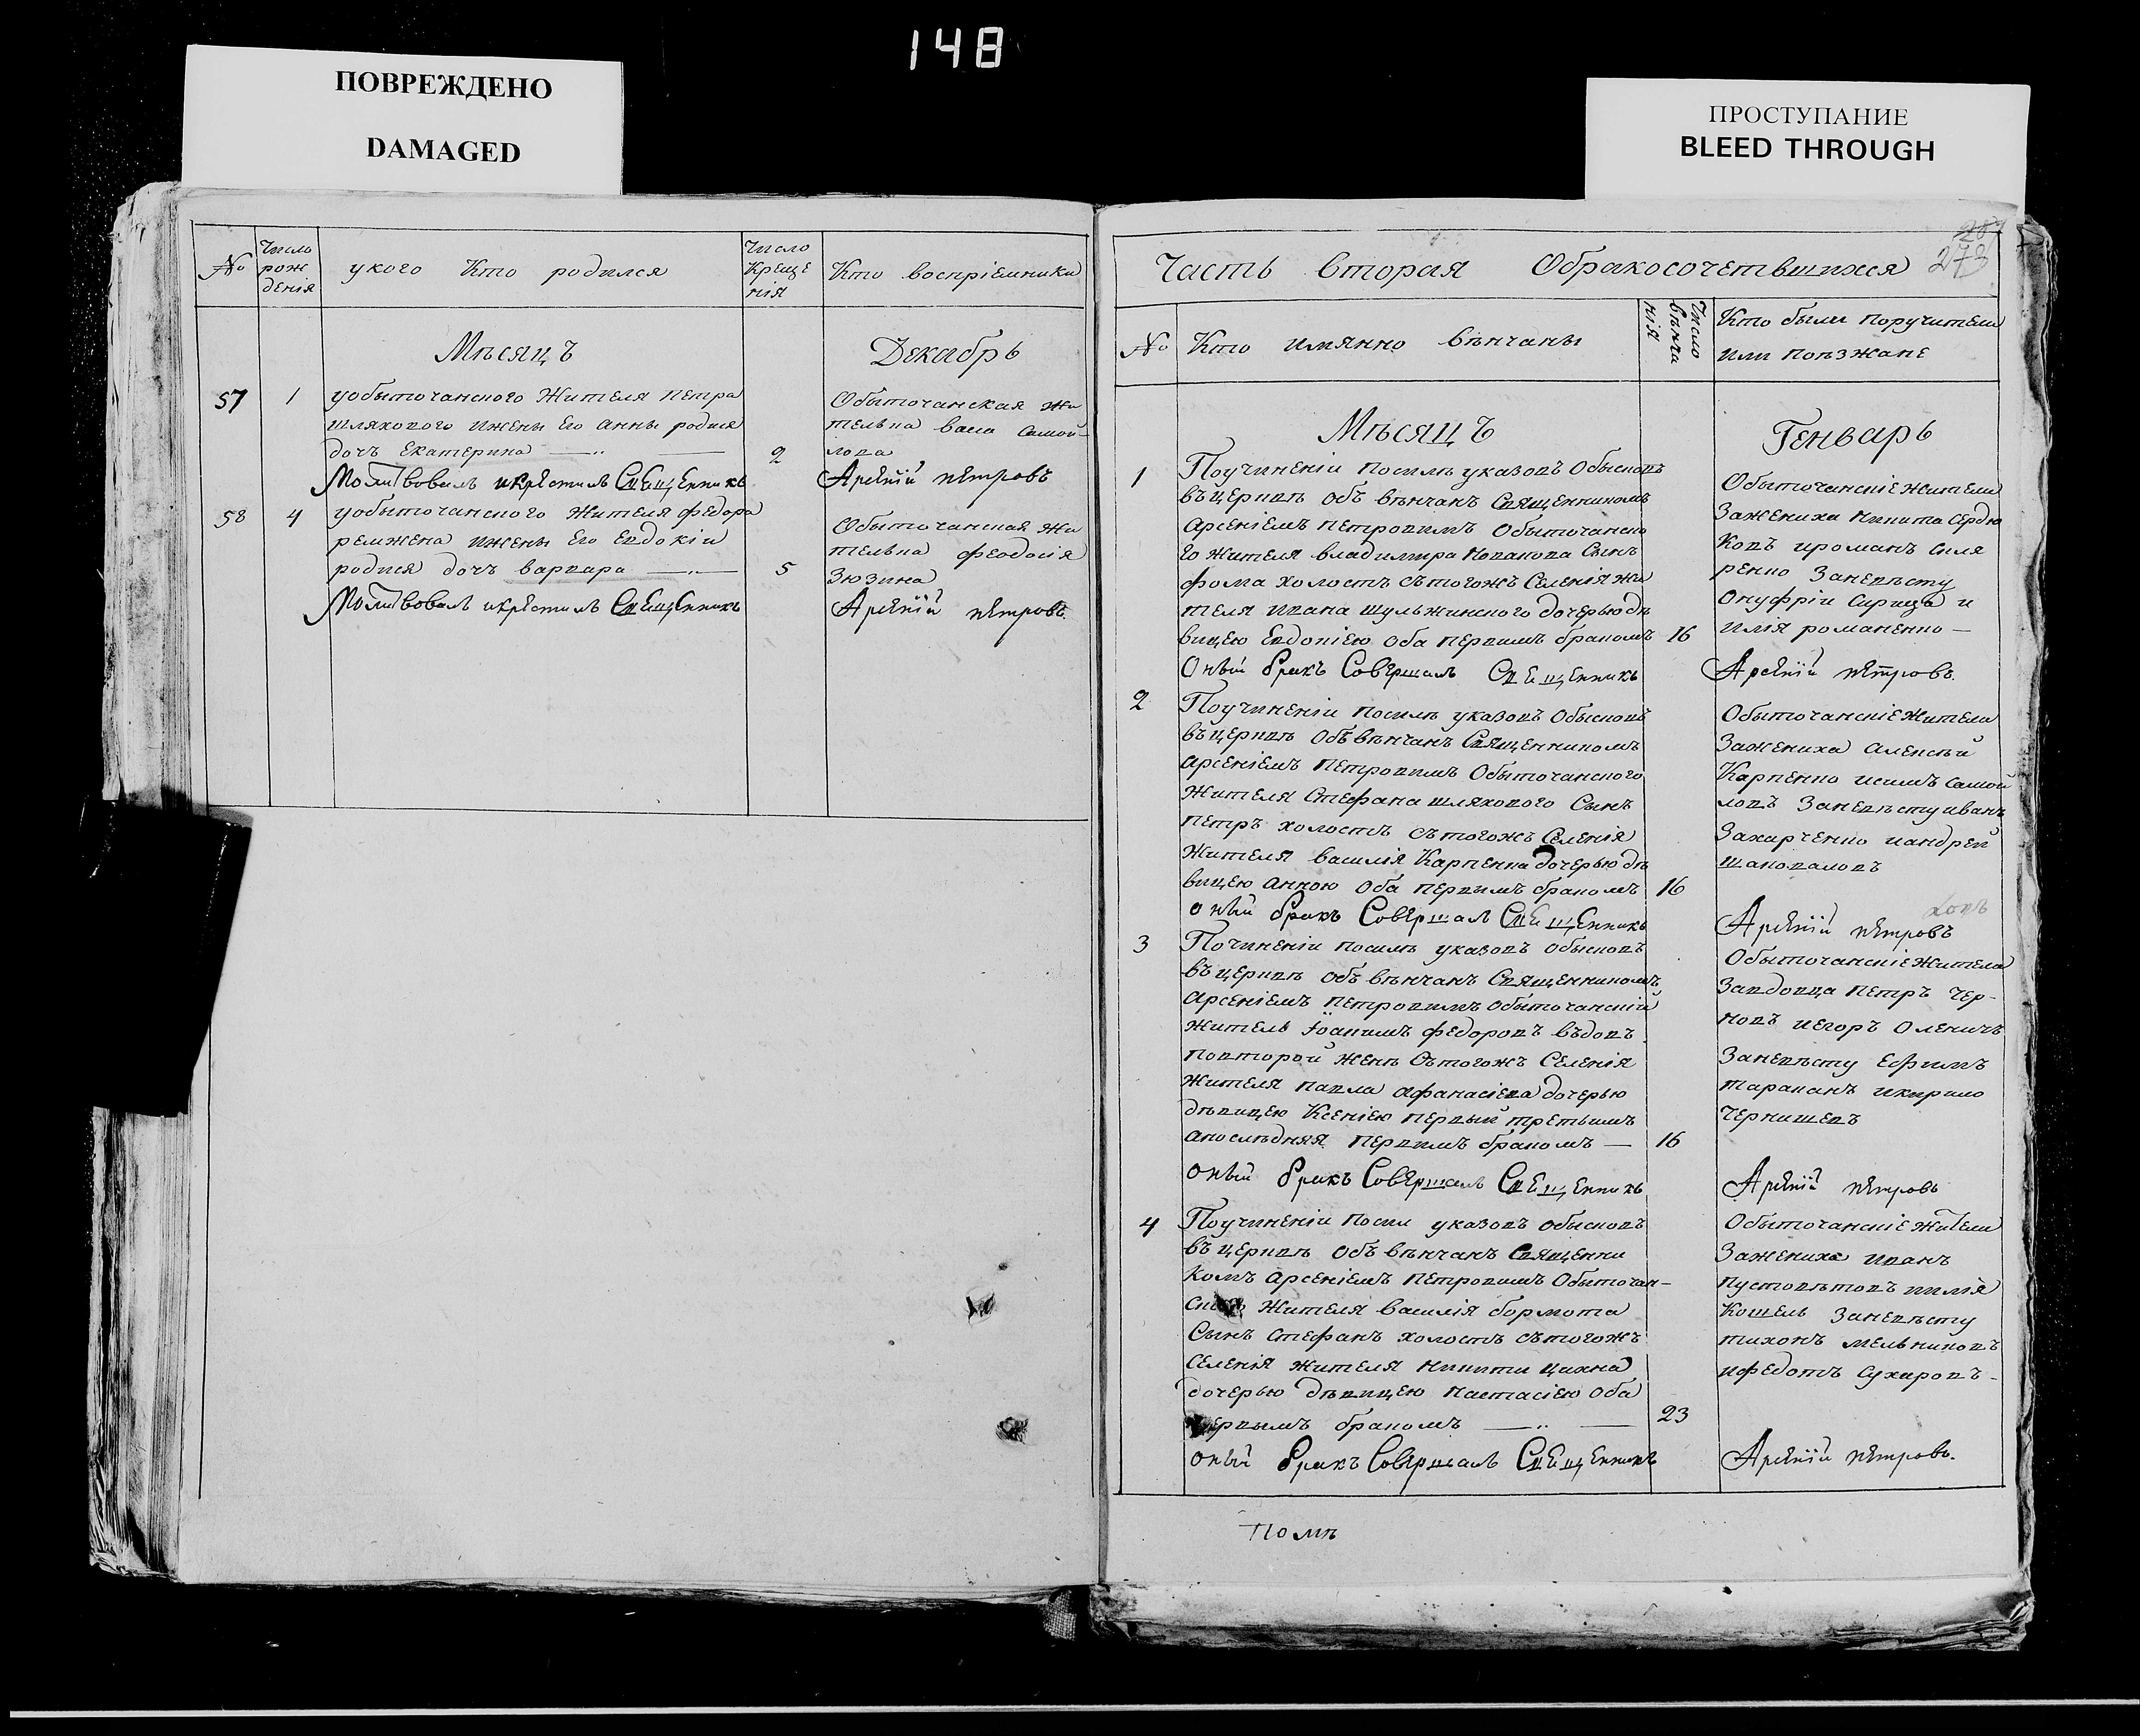 148
ПОВРЕЖДЕНО
DAMAGED
ПРОСТУПАНИЕ
BLEED THROUGH
№
Число рож дения
укого Кто родился
Число Креще нія
Кто воспріемники
Мѣсяцъ Декабрь
57 1 уобыточанского Жителя петра
шляхового ижены Его анны родися
дочъ Екатерина 2
Молитвовалъ икрестилъ Свещенникъ
Обыточанская жи
тельна васа самой
лова
Арсеній петровъ
58 4 уобыточанского Жителя федора
ремжена ижены Его Евдокіи
родися дочъ варвара 5
Молитвовалъ икрестилъ Свещенникъ
Обыточанская жи
тельна феодосія
Зюзина
Арсеній петровъ.
273
Часть вторая Обракосочетвшихся
№ Кто имянно вѣнчаны
Число вѣнча нія
Кто были поручители
или поѣзжане
Мѣсяцъ Генварь
1 Поучиненіи посилѣ указовъ Обысковъ
въцерквѣ объ вѣнчанъ Священникомъ
арсеніемъ петровимъ Обыточанско
го жителя владимира Новакова Сынъ
фома холостъ сътогожъ Селенія жи
теля ивана шульжинского дочерью дѣ
вицею Евдокіею оба первимъ бракомъ 16
Оный бракъ Совершалъ Свещенникъ
Обыточанскіе жители
Зажениха никита сердю
ковъ ироманъ скля
ренко Заневѣсту
онуфріи сирица и
илія романенко
Арсеній петровъ.
2 Поучиненіи посилѣ указовъ Обысковъ
въцерквѣ объвѣнчанъ Священникомъ
арсеніемъ петровимъ Обыточанского
жителя Стефана шляхового Сынъ
петръ холостъ сътогожъ Селенія
жителя василія Карпенка дочерью дѣ
вицею анною оба первымъ бракомъ 16
оный бракъ Совершалъ Свещенникъ
Обыточанскіе жители
Зажениха алексѣй
Карпенко исимъ самой
ловъ Заневѣсту иванъ
Захарченко иандрей
шаповаловъ
Арсеній петровъ
3 Починеніи посилѣ указовъ обысковъ
въцерквѣ объ вѣнчанъ Священникомъ
арсеніемъ петровимъ обыточанскій
житель Іоакимъ федоровъ вѣдовъ
повторой женѣ сътогожъ Селенія
жителя павла афанасіева дочерью
дѣвицею Ксеніею первый третьимъ
апослѣдняя первимъ бракомъ 16
оный бракъ Совершалъ Свещенникъ
Обыточанскіе жители
Завдовца петръ чер-
новъ иегоръ оленичъ
Заневѣсту Ефимъ
тараканъ икирило
чернишевъ
Арсеній петровъ
4 Поучиненіи посили указовъ обысковъ
въцерквѣ объвѣнчанъ Священни
комъ арсеніемъ петровимъ Обыточан-
ского жителя василія бормота
Сынъ стефанъ холостъ сътогожъ
Селенія жителя никити цихна
дочерью дѣвицею настасіею оба
первымъ бракомъ 23
оный бракъ Совершалъ Свещенникъ
Обыточанскіе жители
Зажениха иванъ
пустовѣтовъ иилія
Кошель Заневѣсту
тихонъ мельниковъ
ифедотъ сухаровъ-
Арсеній петровъ.
помѣ